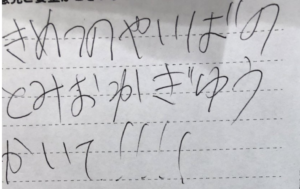 きめつのやいばの
とみおかぎゆう
かいて!!!!